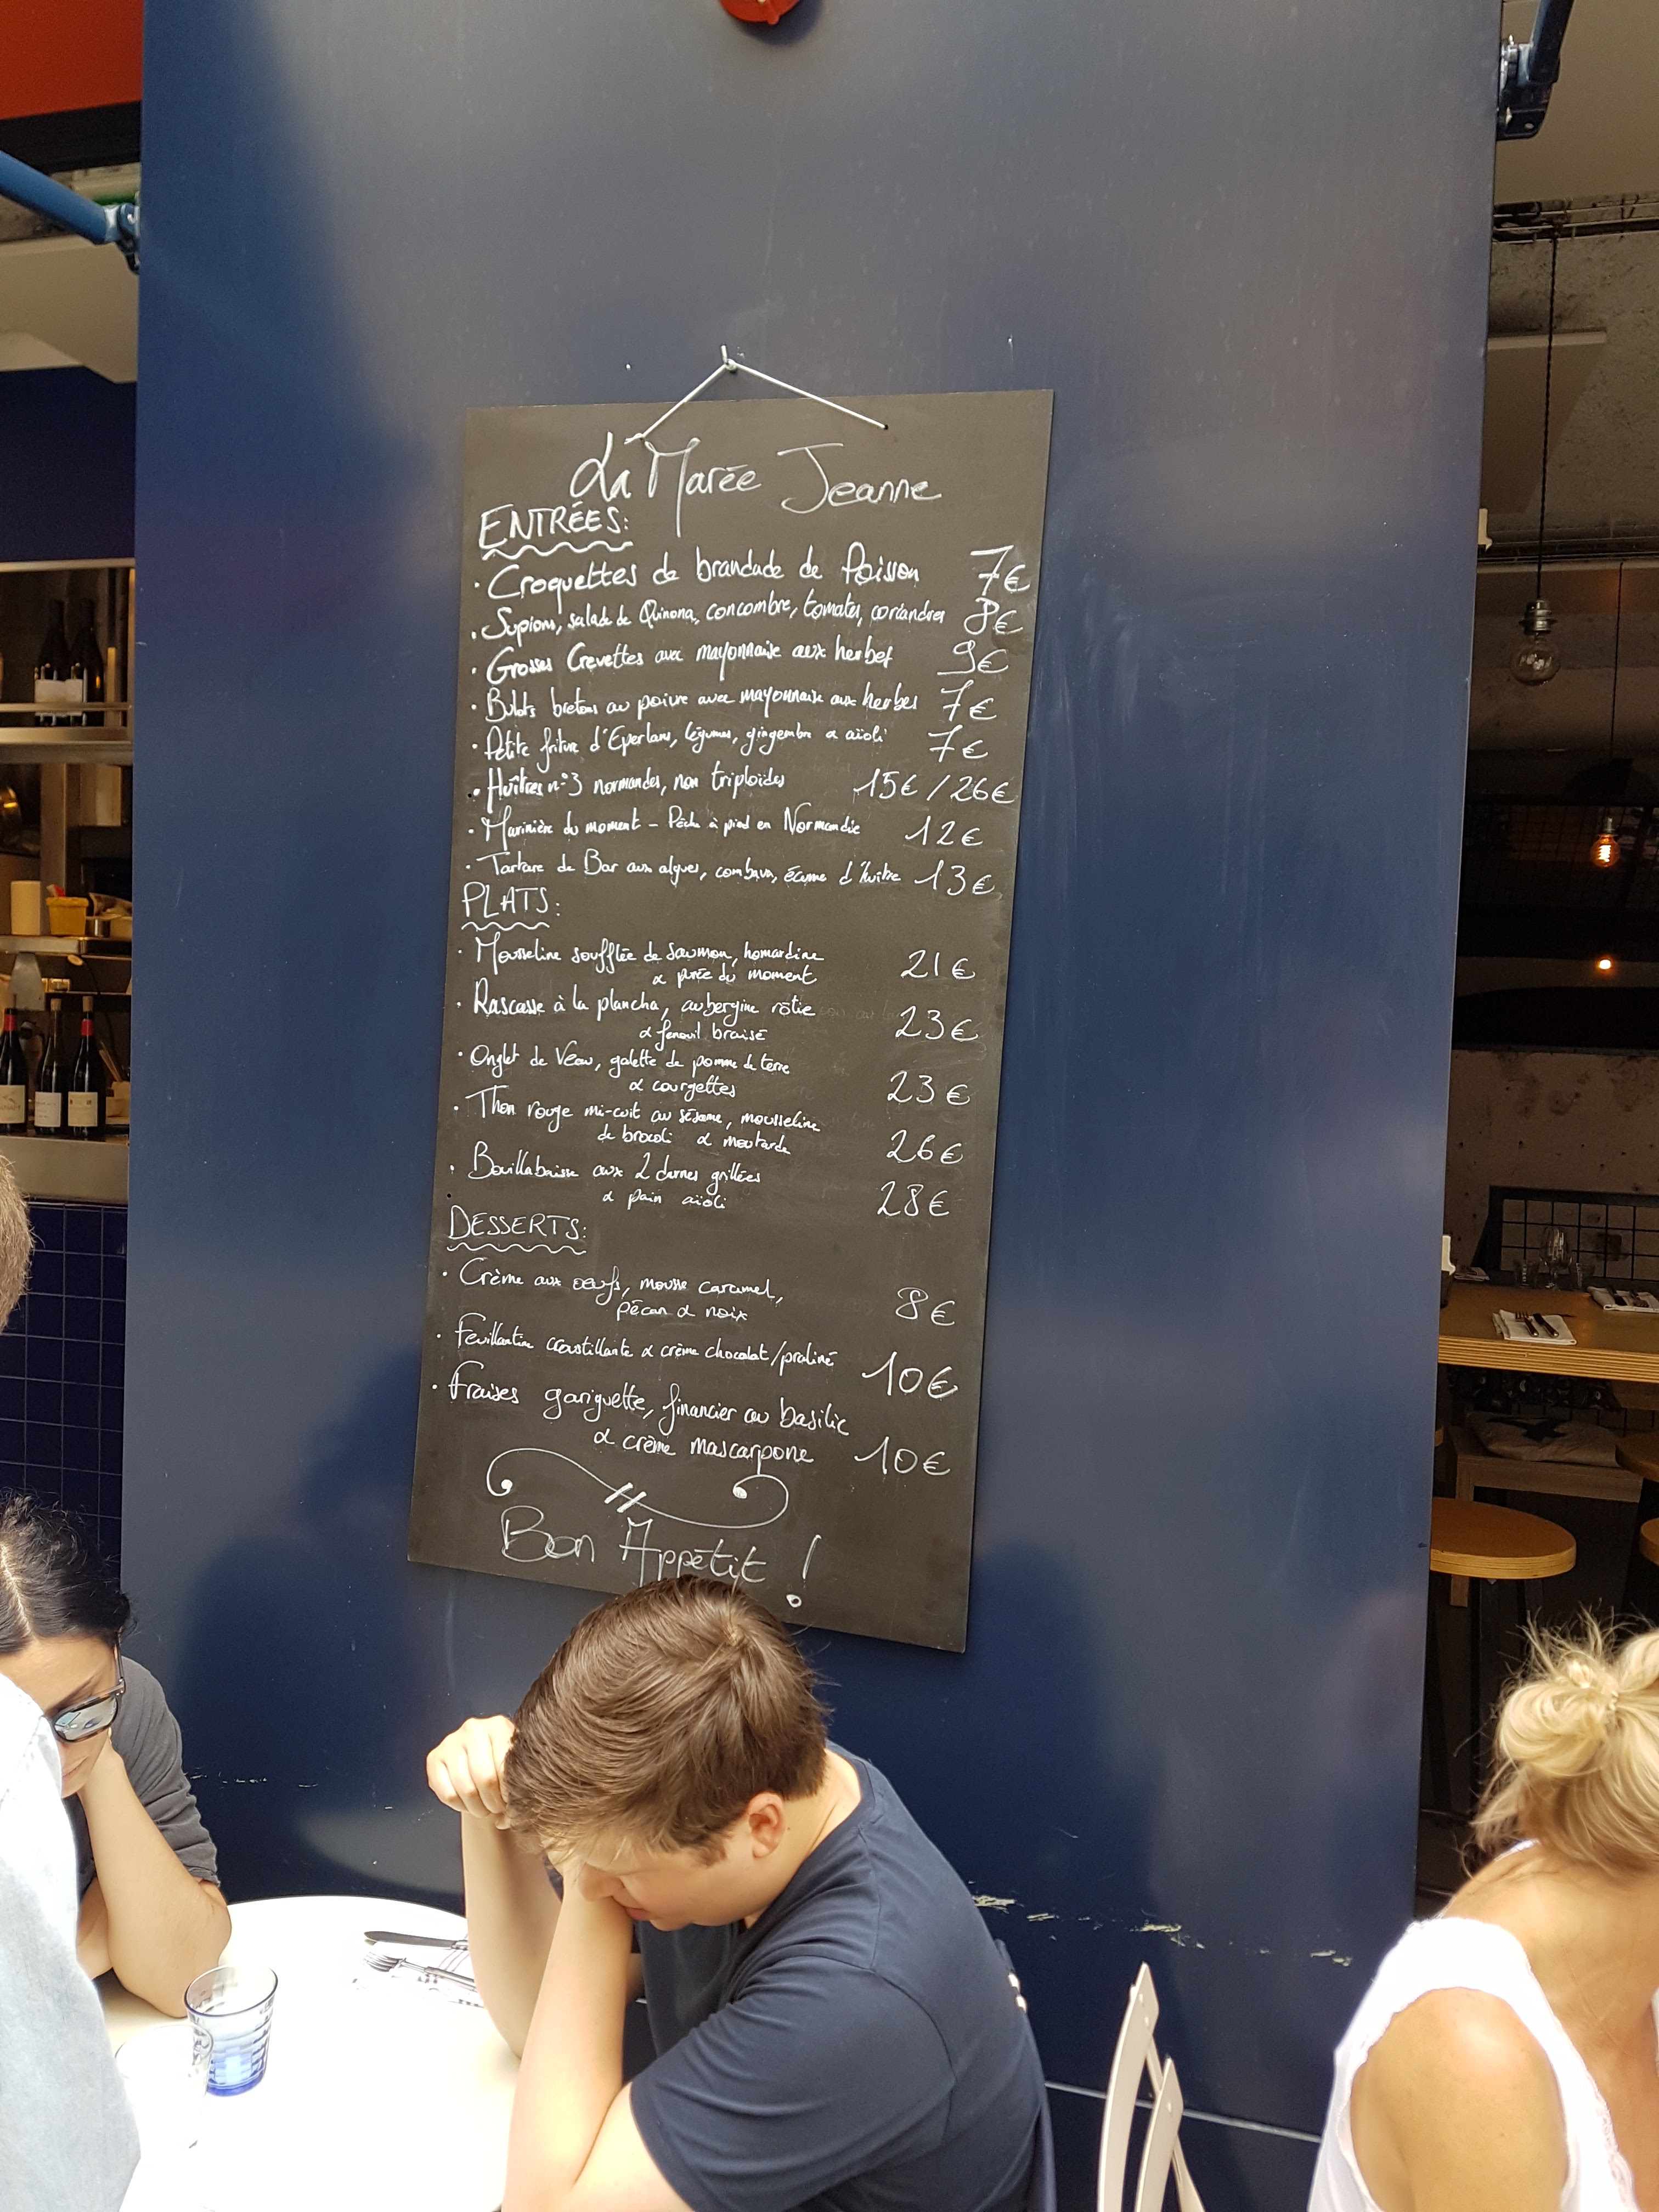 La Marée Jeanne
ENTRÉES:
• Croquettes de brandade de Poisson 7€
• Supions, salade de Quinona, concombre, tomates, coriandres 8€
• Grosses Crevettes avec mayonnaise aux herbes 9€
• Bulots bretons au poivre avec mayonnaise aux herbes 7€
• Petite friture d'Eperlans, légumes, gingembre & aïoli 7€
• Huîtres n°3 normandes, non triploïdes 15€ / 26€
• Marinière du moment - Pêche à pied en Normandie 12€
• Tartare de Bar aux algues, combava, écume d'huître 13€
PLATS:
• Mousseline soufflée de Saumon, homardine
& purée du moment 21€
• Rascasse à la plancha, aubergine rôtie
& fenouil braisé 23€
• Onglet de Veau, galette de pomme de terre
& courgettes 23€
• Thon rouge mi-cuit au sésame, mousseline
de brocoli & moutarde 26€
• Bouillabaisse aux 2 darnes grillées
& pain aïoli 28€
DESSERTS:
• Crème aux oeufs, mousse caramel,
pécan & noix 8€
• Feuillantine croustillante & crème chocolat/praliné 10€
• Fraises gariguette, financier au basilic
& crème mascarpone 10€
Bon Appétit !